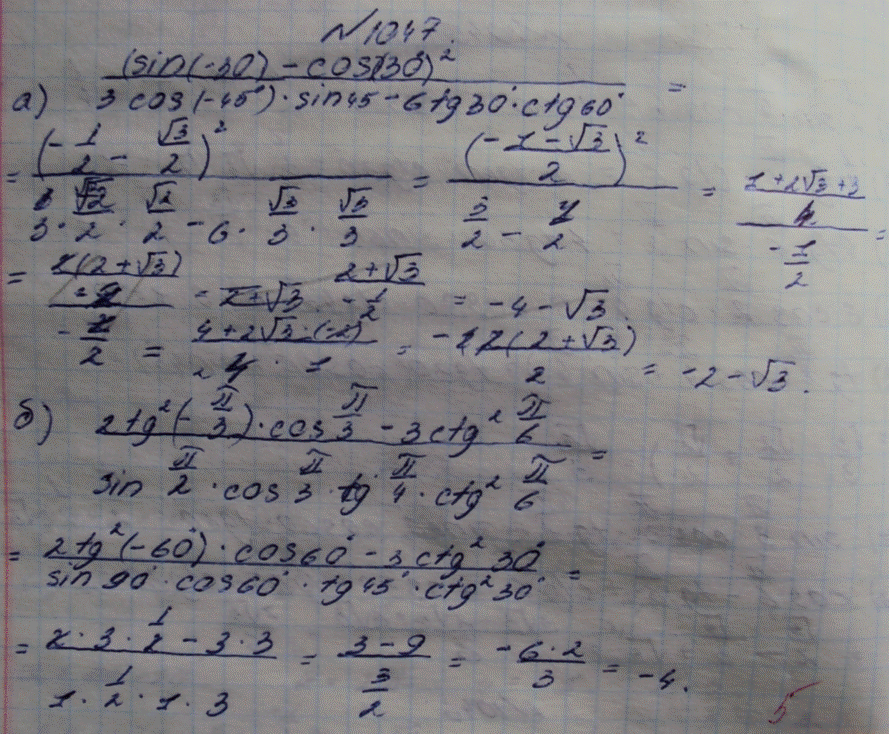 N 1047.
а) (sin(-30) - cos 30°)² / (3 cos(-45°) · sin 45 - 6 tg 30° · ctg 60°) =
= (-1/2 - √3/2)² / (3 · √2/2 · √2/2 - 6 · √3/3 · √3/3) = ((-1-√3)/2)² / (3/2 - 4/2) = ((1+2√3+3)/4) / (-1/2) =
= 2(2+√3) / -1/2 = 2+√3 / -1/2 = -4-√3
= (4+2√3 · (-2)) / (4 · 1) = -2(2+√3) / 2 = -2-√3.
б) (2tg²(-π/3) · cos π/3 - 3ctg² π/6) / (sin π/2 · cos π/3 · tg π/4 · ctg² π/6) =
= (2tg²(-60°) · cos 60° - 3 ctg² 30°) / (sin 90° · cos 60° · tg 45° · ctg² 30°) =
= (2 · 3 · 1/2 - 3 · 3) / (1 · 1/2 · 1 · 3) = (3-9) / (3/2) = (-6 · 2) / 3 = -4.
5